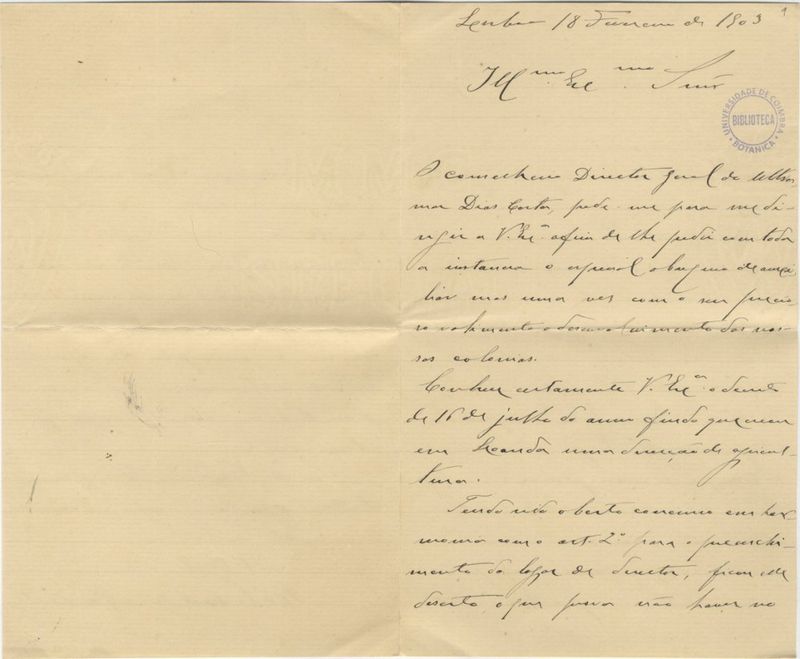 Lisboa 18 Fevereiro de 1903
1
Ill.mo Ex.mo Snr.
UNIVERSIDADE DE COIMBRA
BIBLIOTECA
BOTANICA
O conselheiro Director geral do Ultra
mar Dias Costa, pede-me para me di-
rigir a V. Ex.a afim de lhe pedir com toda
a instancia o especial obsequio de auxi-
liar mais uma vez com o seu precio-
so valimento o desenvolvimento das nos-
sas colonias.
Conhece certamente V. Ex.a o decreto
de 16 de julho do anno findo que creou
em Loanda uma direcção de agricul-
tura.
Tendo sido aberto concurso em har
monia com o art. 2.o para o preenchi-
mento do logar de director, ficou elle
deserto, o que prova não haver no